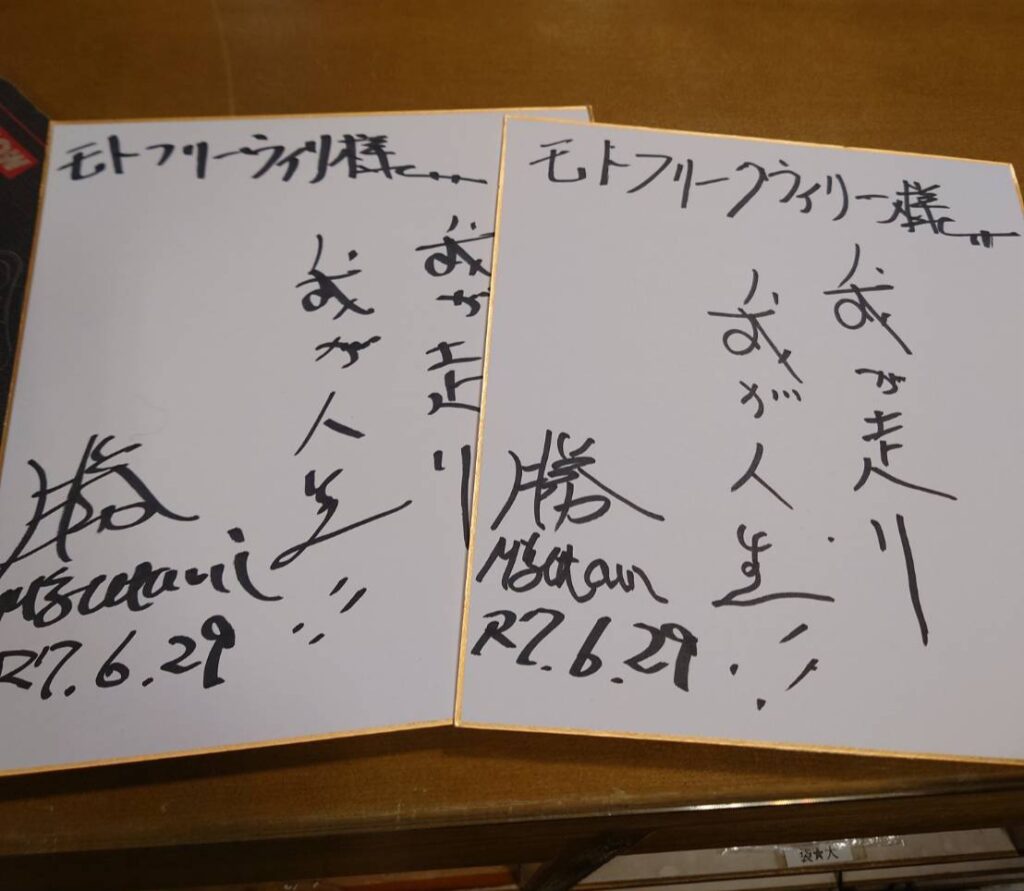 モトフリーウィリ様
我が走り
我が人生
勝
Mizutani
R7.6.29
モトフリークウィリー様
我が走り
我が人生
勝
Mizutani
R7.6.29
袋★大